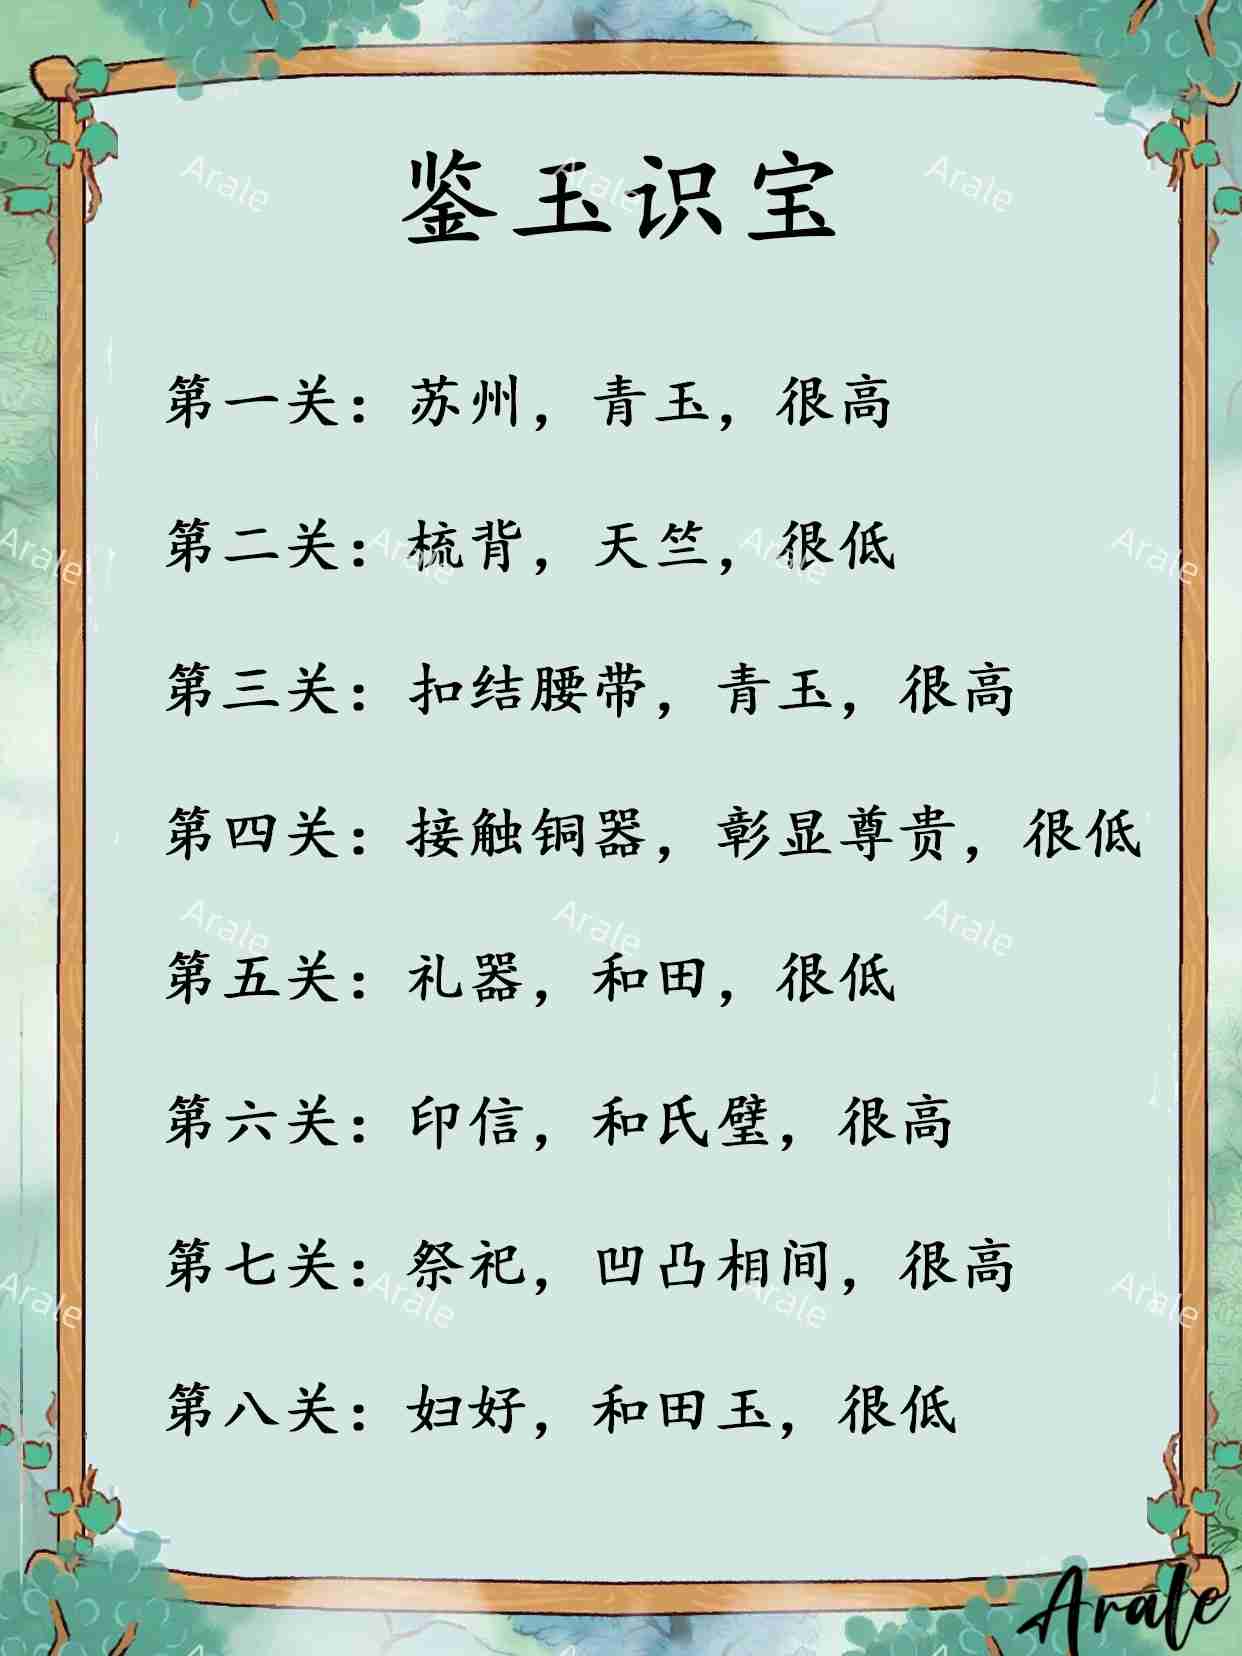 鉴玉识宝
第一关：苏州，青玉，很高
第二关：梳背，天竺，很低
第三关：扣结腰带，青玉，很高
第四关：接触铜器，彰显尊贵，很低
第五关：礼器，和田，很低
第六关：印信，和氏璧，很高
第七关：祭祀，凹凸相间，很高
第八关：妇好，和田玉，很低
Arale